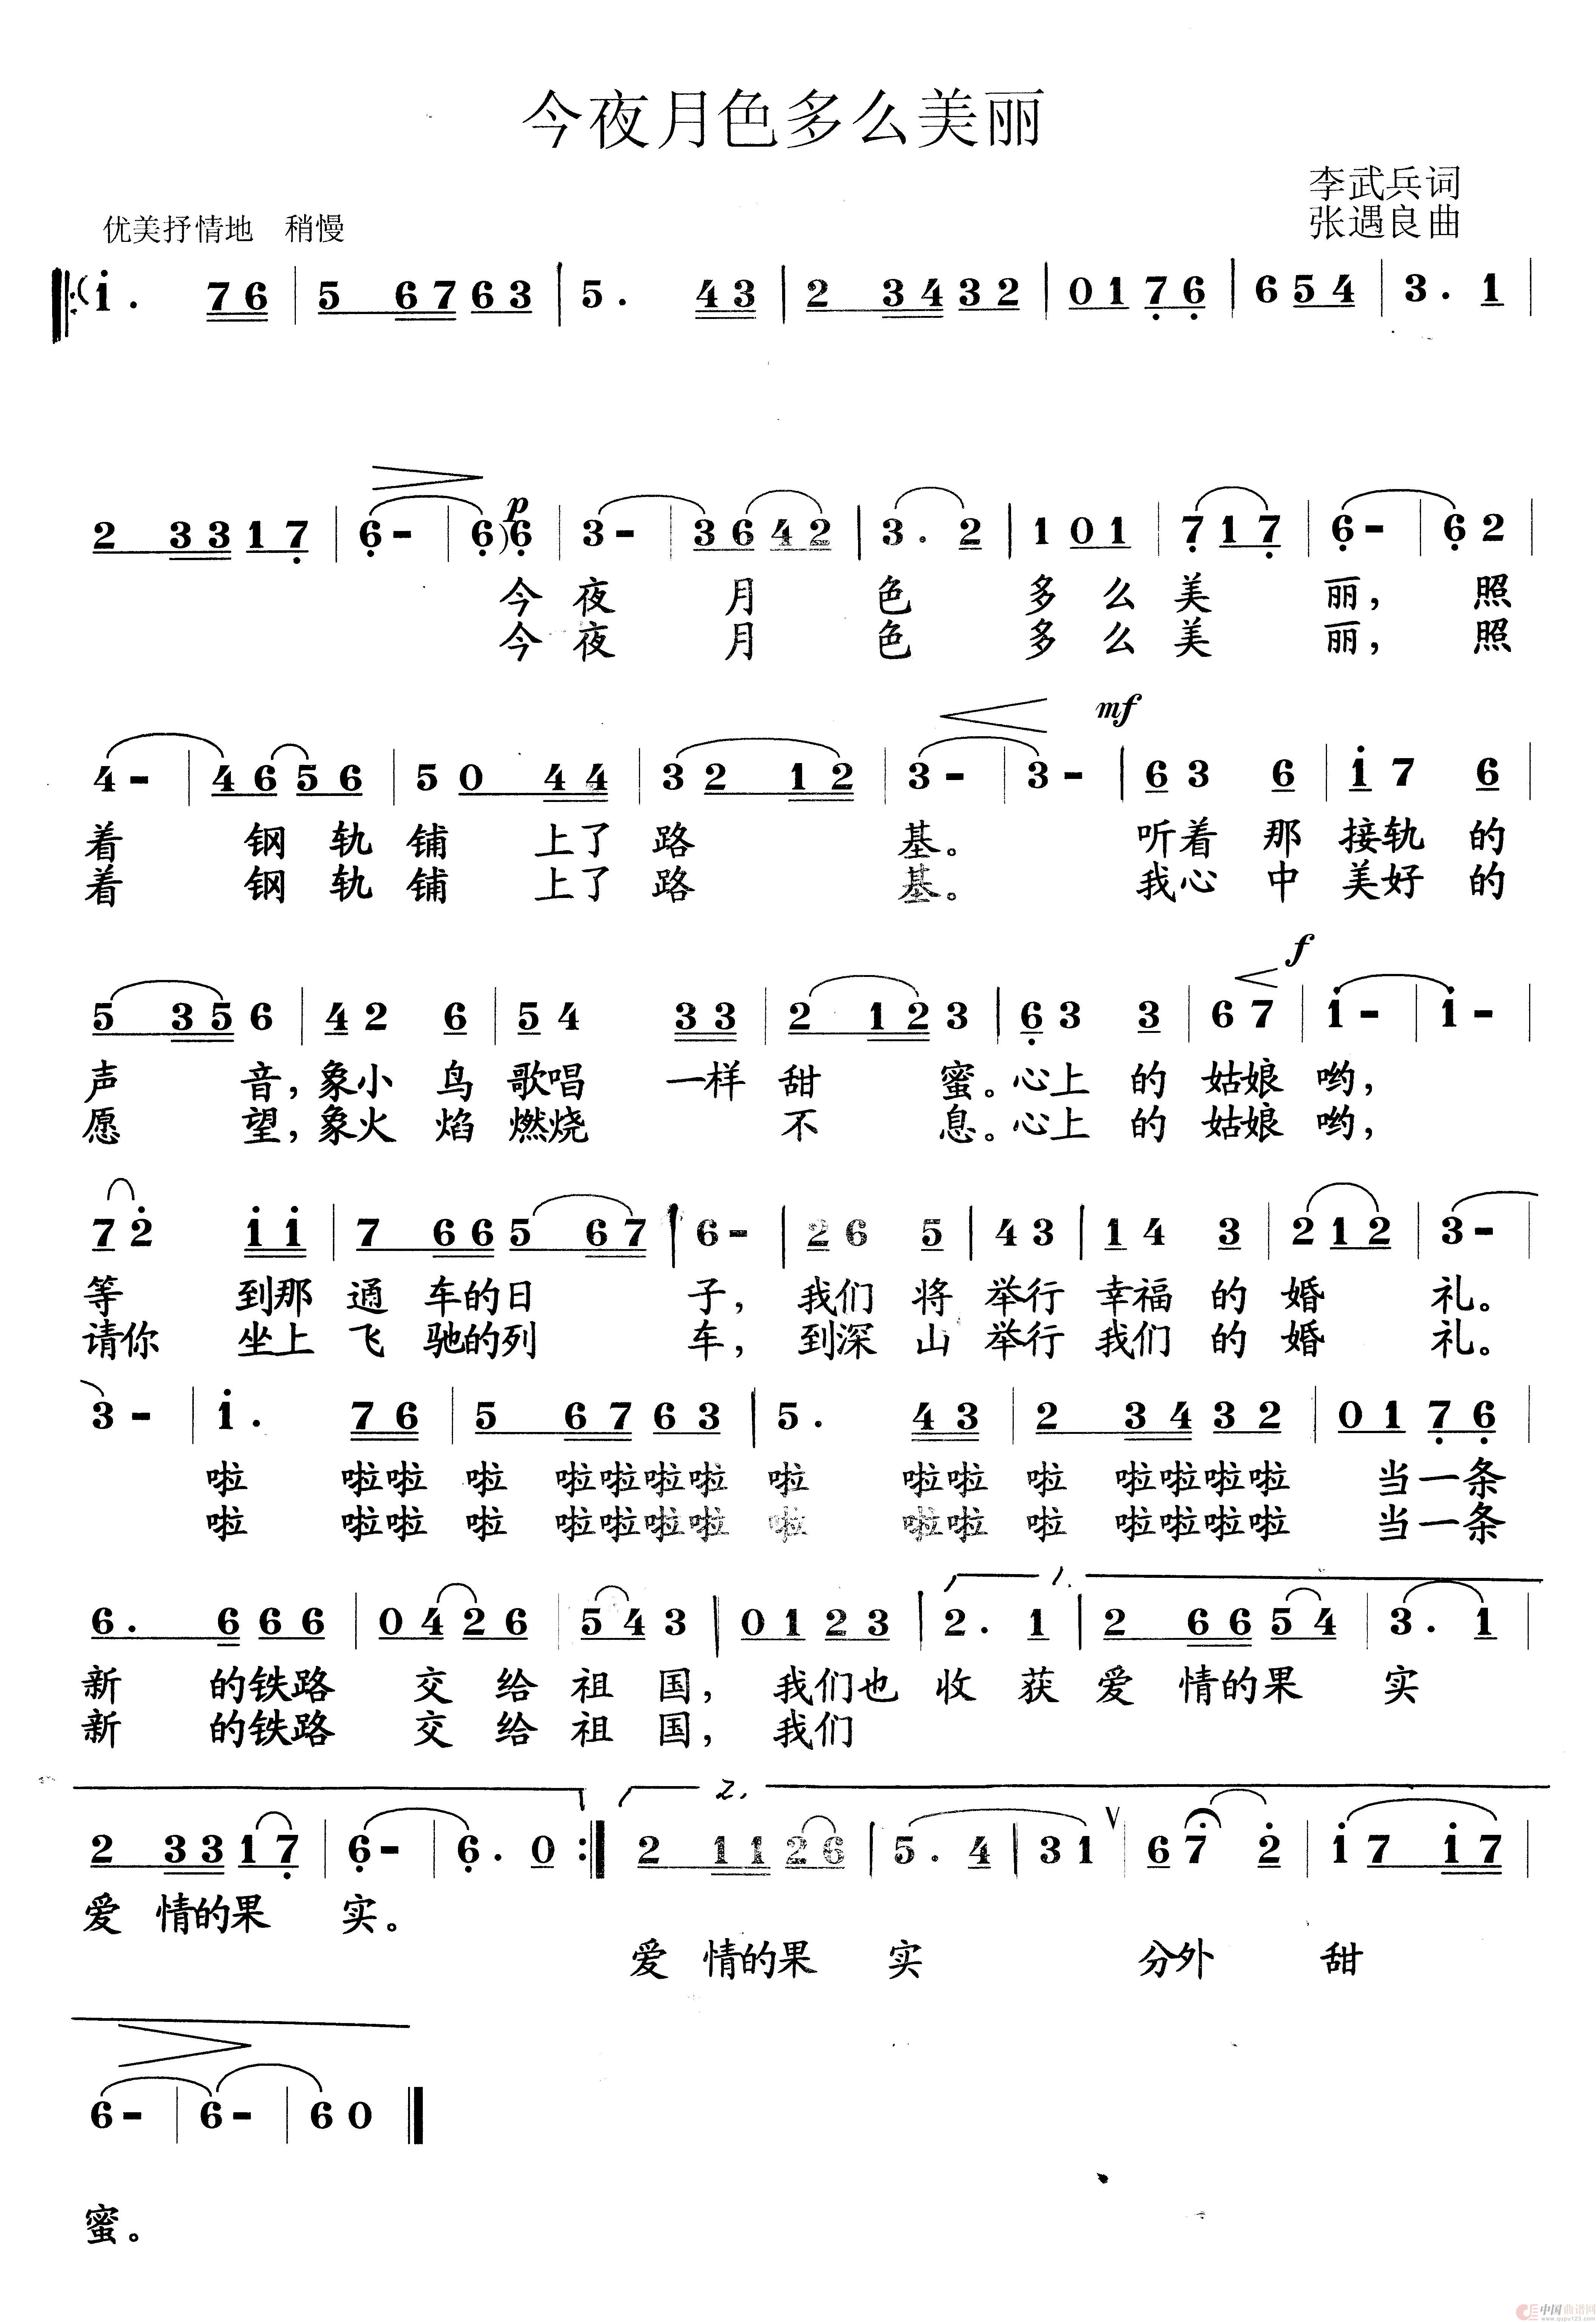 今夜月色多么美丽
李武兵词
优美抒情地 稍慢
张遇良曲
i. 76 | 5 6763 | 5. 43 | 2 3432 | 0176 | 654 | 3. 1 |
p
2 3317 | 6- | 6)6 | 3- | 3642 | 3. 2 | 101 | 717 | 6- | 62 |
今夜月色多么美丽,照
今夜月色多么美丽,照
mf
4- | 4656 | 50 44 | 32 12 | 3- | 3- | 63 6 | i7 6 |
着钢轨铺上了路基。听着那接轨的
着钢轨铺上了路基。我心中美好的
f
5 35 6 | 42 6 | 54 33 | 2 12 3 | 63 3 | 67 | i- | i- |
声音,象小鸟歌唱一样甜蜜。心上的姑娘哟,
愿望,象火焰燃烧不息。心上的姑娘哟,
72 ii | 7 665 67 | 6- | 26 5 | 43 | 14 3 | 212 | 3- |
等到那通车的日子,我们将举行幸福的婚礼。
请你坐上飞驰的列车,到深山举行我们的婚礼。
3- | i. 76 | 5 6763 | 5. 43 | 2 3432 | 0176 |
啦 啦啦 啦 啦啦啦啦 啦 啦啦 啦 啦啦啦啦 当一条
啦 啦啦 啦 啦啦啦啦 啦 啦啦 啦 啦啦啦啦 当一条
1.
6. 666 | 0426 | 543 | 0123 | 2. 1 | 2 6654 | 3. 1 |
新的铁路交给祖国,我们也收获爱情的果实
新的铁路交给祖国,我们
2.
2 3317 | 6- | 6. 0 :| 2 1126 | 5. 4 | 31 V | 67 2 | i7 i7 |
爱情的果实。
爱情的果实分外甜
6- | 6- | 60 |
蜜。
中国曲谱网
www.qupu123.com